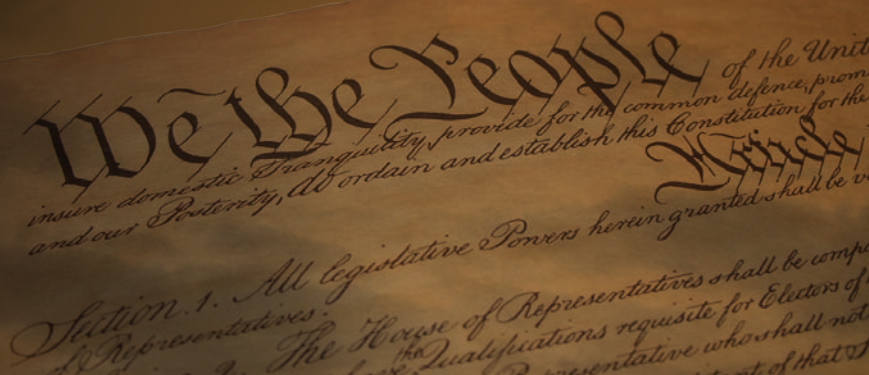 We the People of the Unit
insure domestic Tranquility, provide for the common defence, prom
and our Posterity, do ordain and establish this Constitution for the
Article
Section. 1. All legislative Powers herein granted shall be v
of Representatives.
The House of Representatives shall be comp
the Qualifications requisite for Electors of
Representative who shall not
of that S